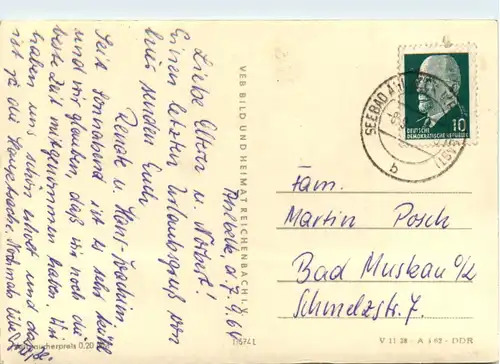 Ahlbeck, d. 7.9.64
Liebe Eltern u. Norbert!
Einen letzten Urlaubsgruß von
hier senden Euch
Renate u. Hans-Joachim
Seit Sonnabend ist es sehr kühl
und wir glauben, daß wir noch die
beste Zeit mitgenommen haben. Wir
haben uns schön erholt und das
ist ja die Hauptsache. Nochmals
VEB BILD UND HEIMAT REICHENBACH I. V.
SEEBAD
b
DEUTSCHE
DEMOKRATISCHE REPUBLIK
10
Fam.
Martin Posch
Bad Muskau O/L
Schmelzstr. 7.
Verbraucherpreis 0,20
V 11 28 - A 1 62 - DDR